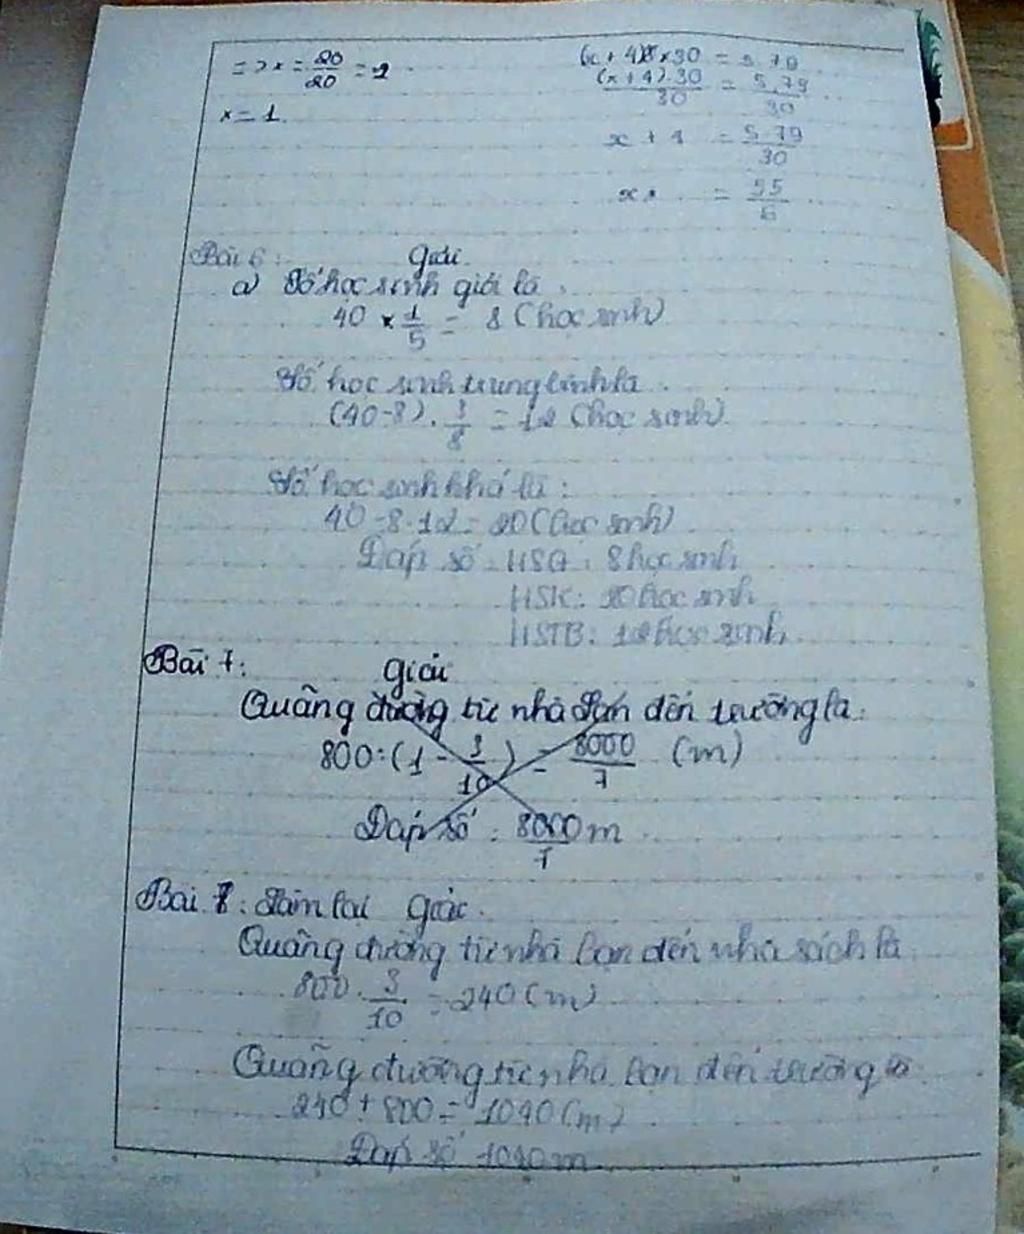 => x = 20/20 = 1
x = 1.
(x + 4) × 30 = 5.79
(x + 4).30/30 = 5.79/30
x + 4 = 5.79/30
x = 55/6
Bài 6: Giải
a) Số học sinh giỏi là
40 × 1/5 = 8 (học sinh)
Số học sinh trung bình là
(40-8) . 3/8 = 12 (học sinh)
Số học sinh khá là :
40 - 8 - 12 = 20 (học sinh)
Đáp số HSG : 8 học sinh
HSK: 20 học sinh
HSTB: 12 học sinh
Bài 7: Giải
Quãng đường từ nhà Lan đến trường là:
800:(1 - 3/10) = 8000/7 (m)
Đáp số : 8000/7 m
Bài 7: Làm lại Giải
Quãng đường từ nhà bạn đến nhà sách là
800 . 3/10 = 240 (m)
Quãng đường từ nhà bạn đến trường là
240 + 800 = 1040 (m)
Đáp số 1040 m